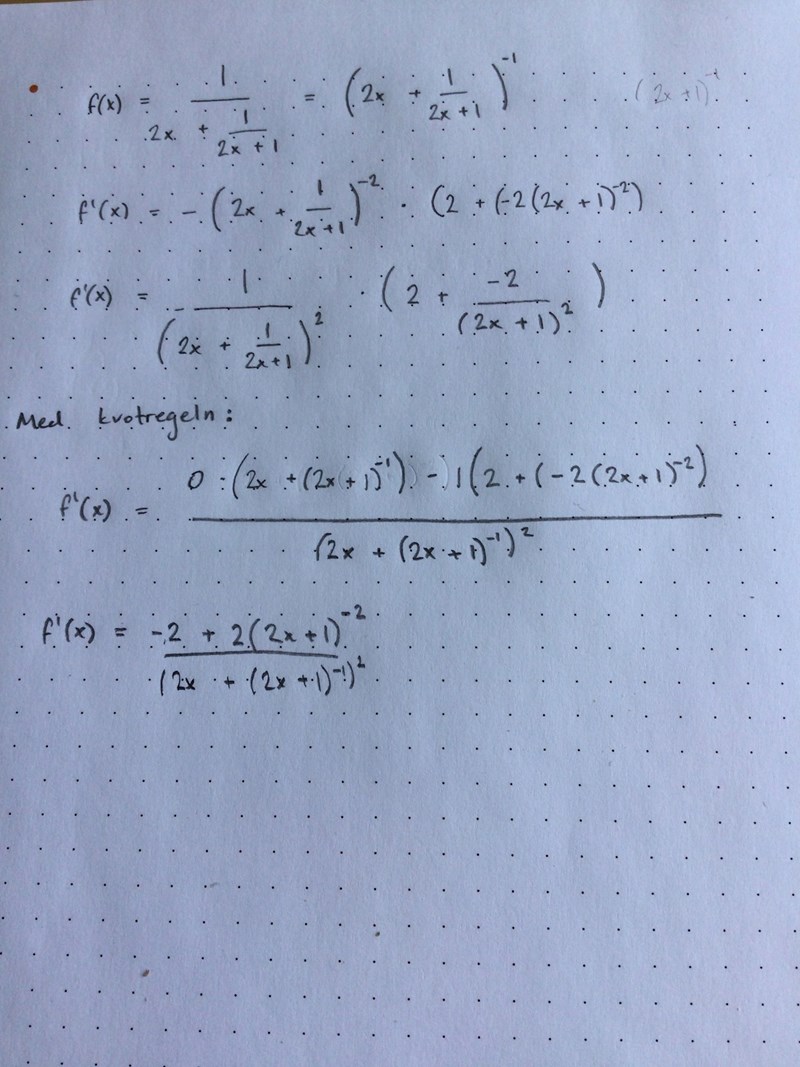 f(x) = 1 / (2x + 1/(2x + 1)) = (2x + 1/(2x + 1))^-1 (2x + 1)^-1
f'(x) = - (2x + 1/(2x + 1))^-2 · (2 + (-2(2x + 1)^-2)
f'(x) = - 1 / (2x + 1/(2x+1))^2 · (2 + -2/(2x + 1)^2)
Med kvotregeln:
f'(x) = 0 · (2x + (2x + 1)^-1) - 1(2 + (-2(2x + 1)^-2) / (2x + (2x + 1)^-1)^2
f'(x) = -2 + 2(2x + 1)^-2 / (2x + (2x + 1)^-1)^2